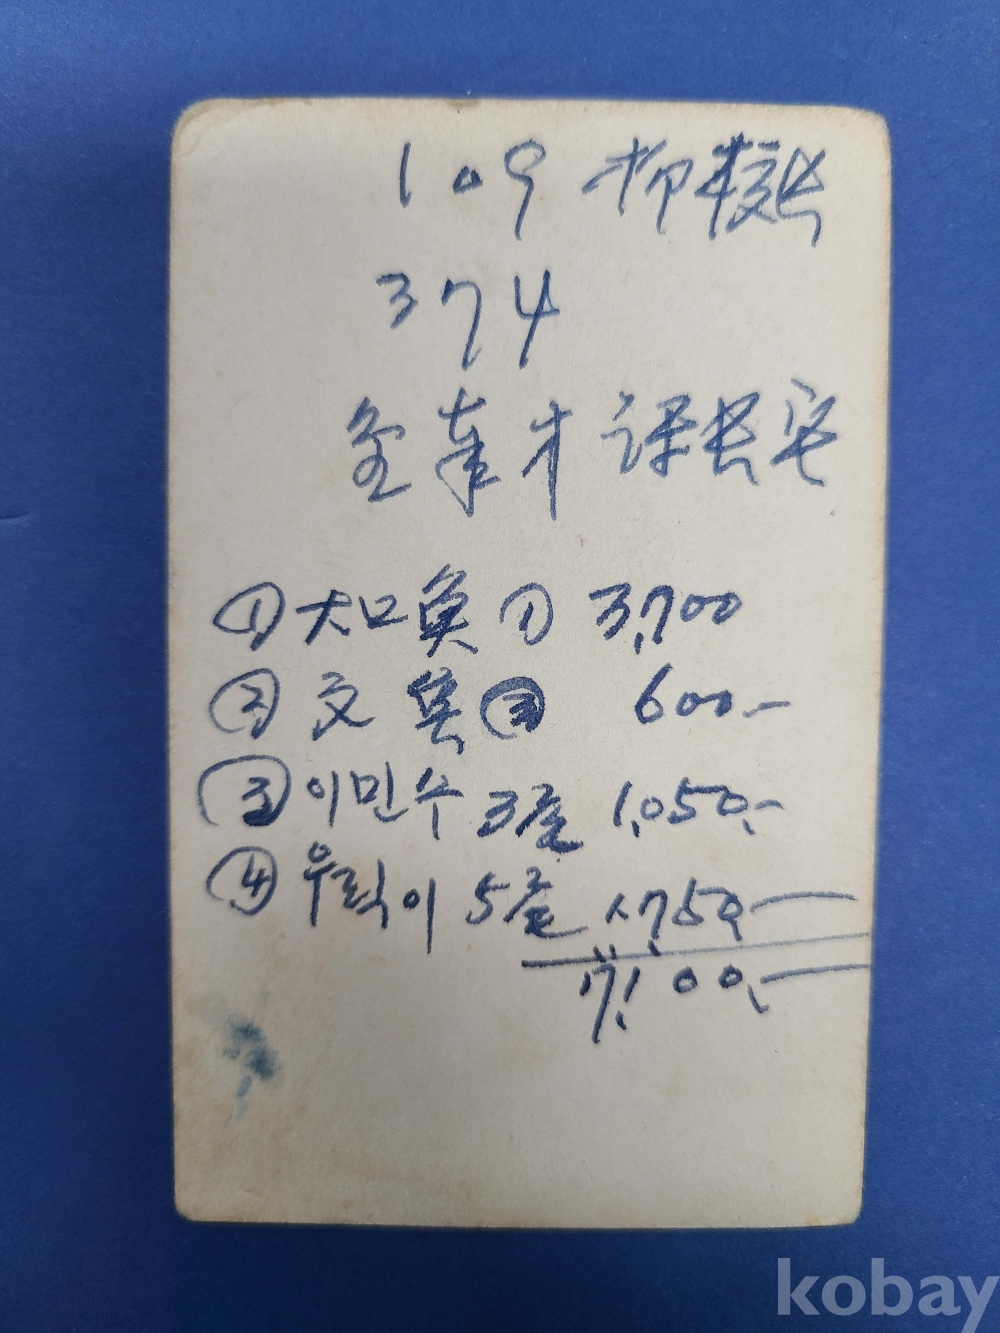 109 柳校長
374
金奉才 課長宅
① 大口魚 ① 3,700
② 文魚 ② 600.-
③ 이민수 3줄 1,050.-
④ 우럭이 5줄 1,750.-
7,100.-
kobay